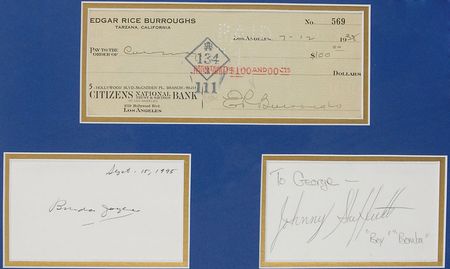 EDGAR RICE BURROUGHS
TARZANA, CALIFORNIA
No. 569
LOS ANGELES, 7-12 19
PAY TO THE
ORDER OF
$100
134
111
$100 AND 00 CTS
DOLLARS
HOLLYWOOD BLVD.
CITIZENS NATIONAL BANK
LOS ANGELES
Sept. 15, 1995
Brenda Joyce
To George -
Johnny Sheffield
"Boy" "Bomba"